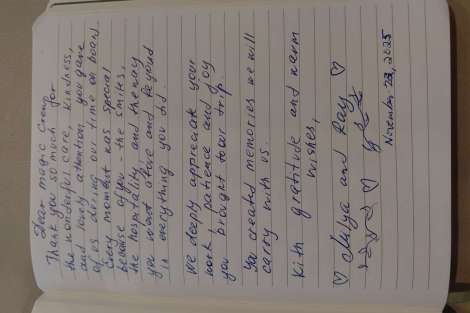 Dear magic crew,
Thank you so much for
the wonderful care, kindness,
and lovely attention you gave
of us during our time on board.
Every moment was special
because of you - the smiles,
the hospitality, and the way
you went above and beyond
in everything you did.
We deeply appreciate your
work, patience and joy
you brought to our trip.
You created memories we will
carry with us.
With gratitude and warm
wishes,
♡ and Ray ♡
♡
November 23, 2025